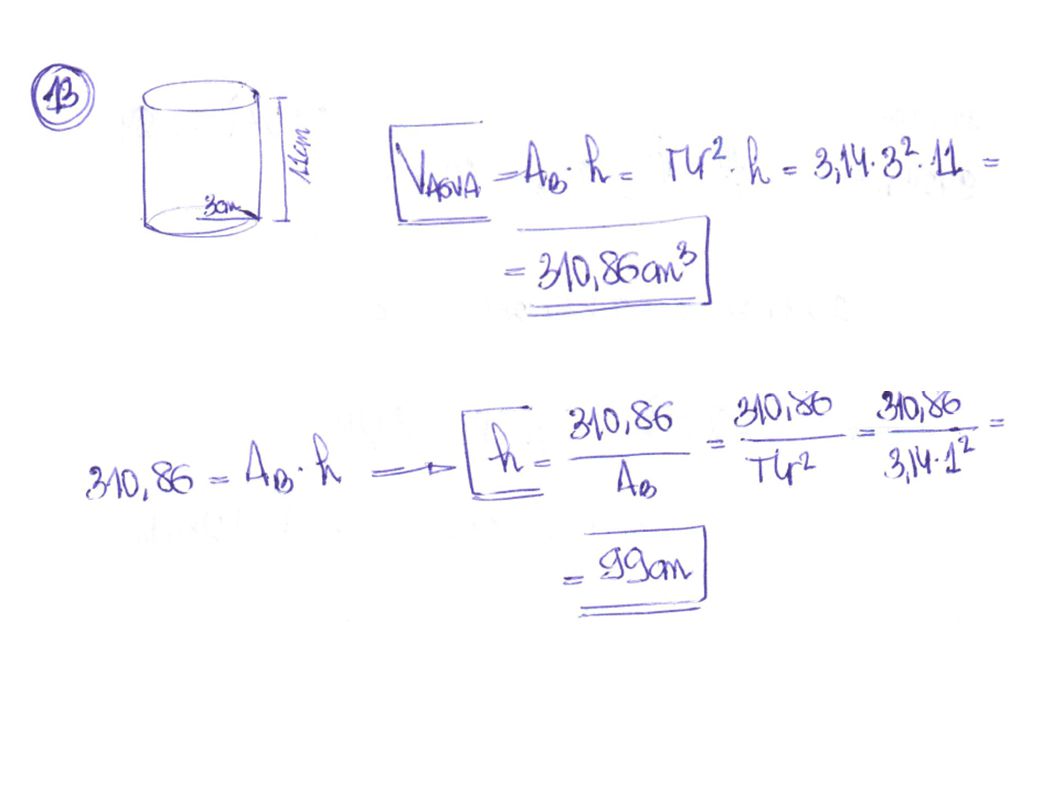 13
11cm
3cm
V AGUA = A_B · h = πr² · h = 3,14 · 3² · 11 =
= 310,86 cm³
310,86 = A_B · h → h = 310,86 / A_B = 310,86 / πr² = 310,86 / 3,14 · 1² =
= 99 cm